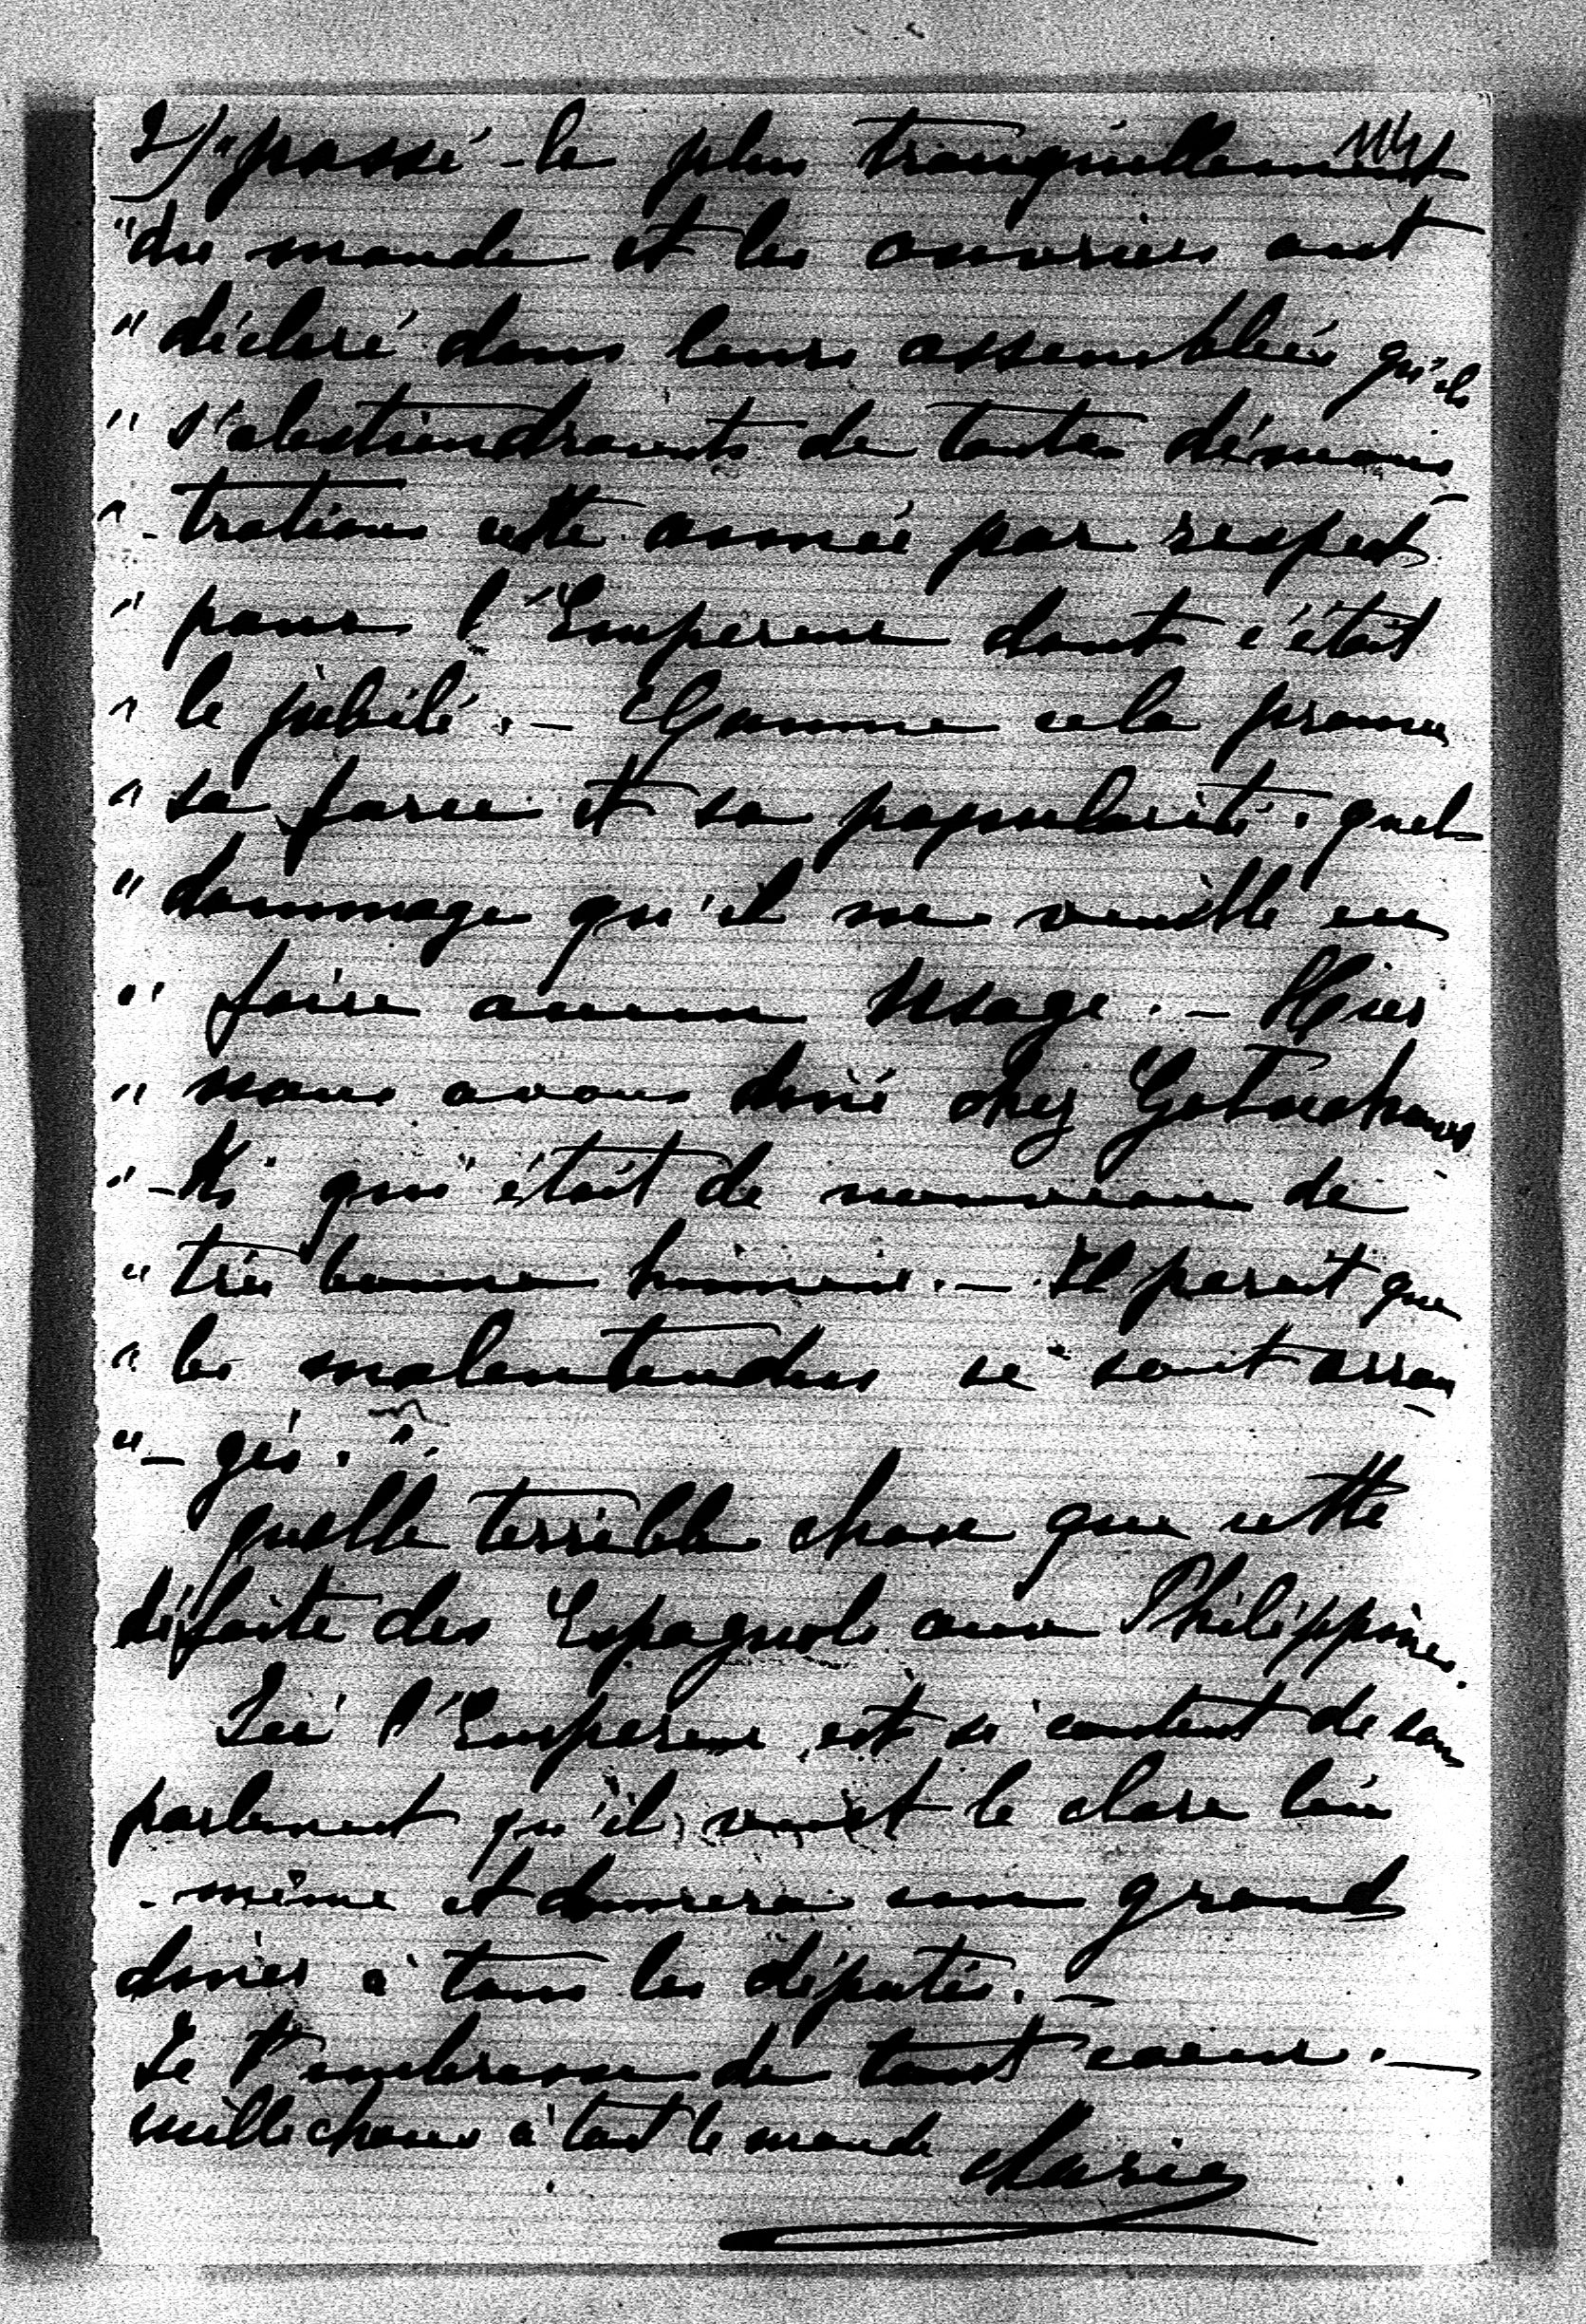 2/ "passé le plus tranquillement 114
"du monde et les ouvriers ont
"déclaré dans leurs assemblées qu'ils
"s'abstiendraients de toutes démons
"-trations cette année par respect
"pour l'Empereur dont c'était
"le jubilé. - Comme cela prouve
"sa force et sa popularité. quel
"dommage qu'il ne veuille en
"faire aucun usage. - Hier
"nous avons diné chez Goluchows
"-ki qui était de nouveau de
"très bonne humeur. - Il parait que
"les malentendus se sont arran
"- gés."
quelle terrible chose que cette
défaite des Espagnols aux Philippines.
Ici l'Empereur est si content de son
parlement qu'il veut le clore lui
-même et donnera un grand
diner à tous les députés. -
Je t'embrasse de tout coeur. -
mille choses à tout le monde Marie